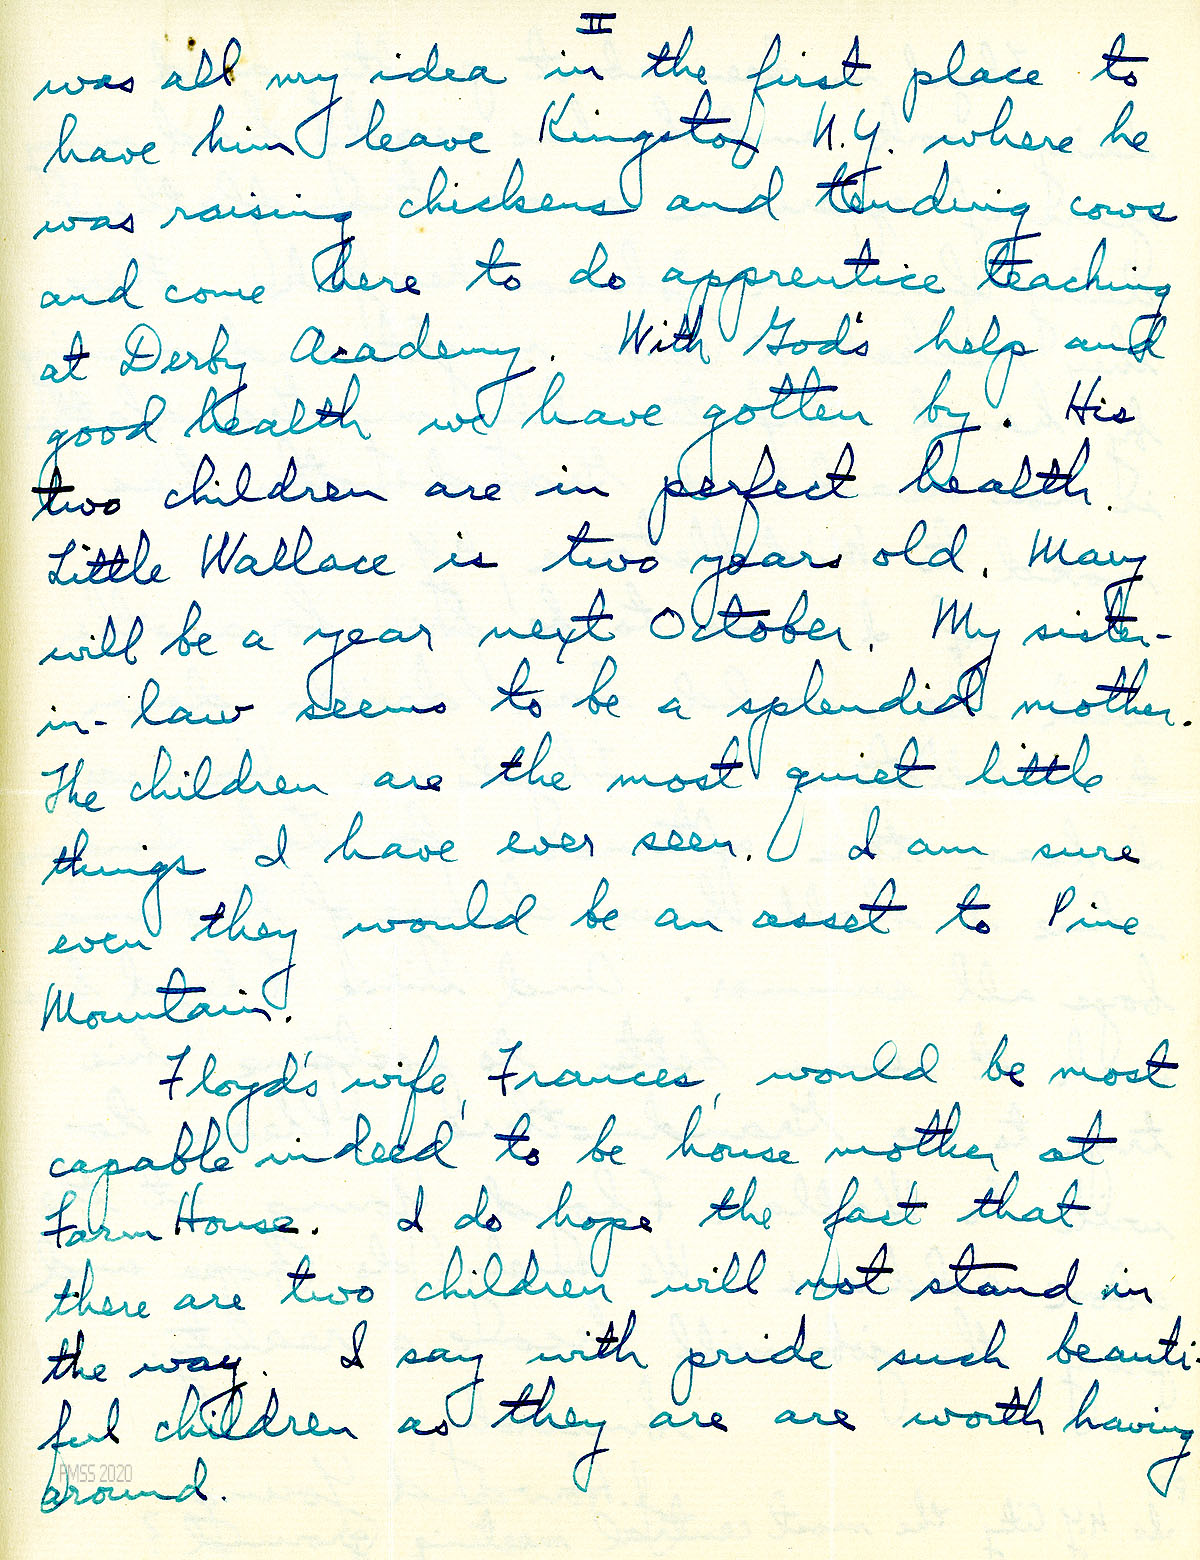 II
was all my idea in the first place to
have him leave Kingston N.Y. where he
was raising chickens and tending cows
and come here to do apprentice teaching
at Derby Academy. With God's help and
good health we have gotten by. His
two children are in perfect health.
Little Wallace is two years old. Mary
will be a year next October. My sister-
in-law seems to be a splendid mother.
The children are the most quiet little
things I have ever seen. I am sure
even they would be an asset to Pine
Mountain.
Floyd's wife, Frances, would be most
capable indeed to be house mother at
Farm House. I do hope the fact that
there are two children will not stand in
the way. I say with pride such beauti-
ful children as they are are worth having
around.
PMSS 2020